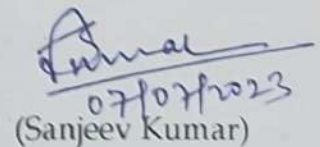 Kumar
07/07/2023
(Sanjeev Kumar)